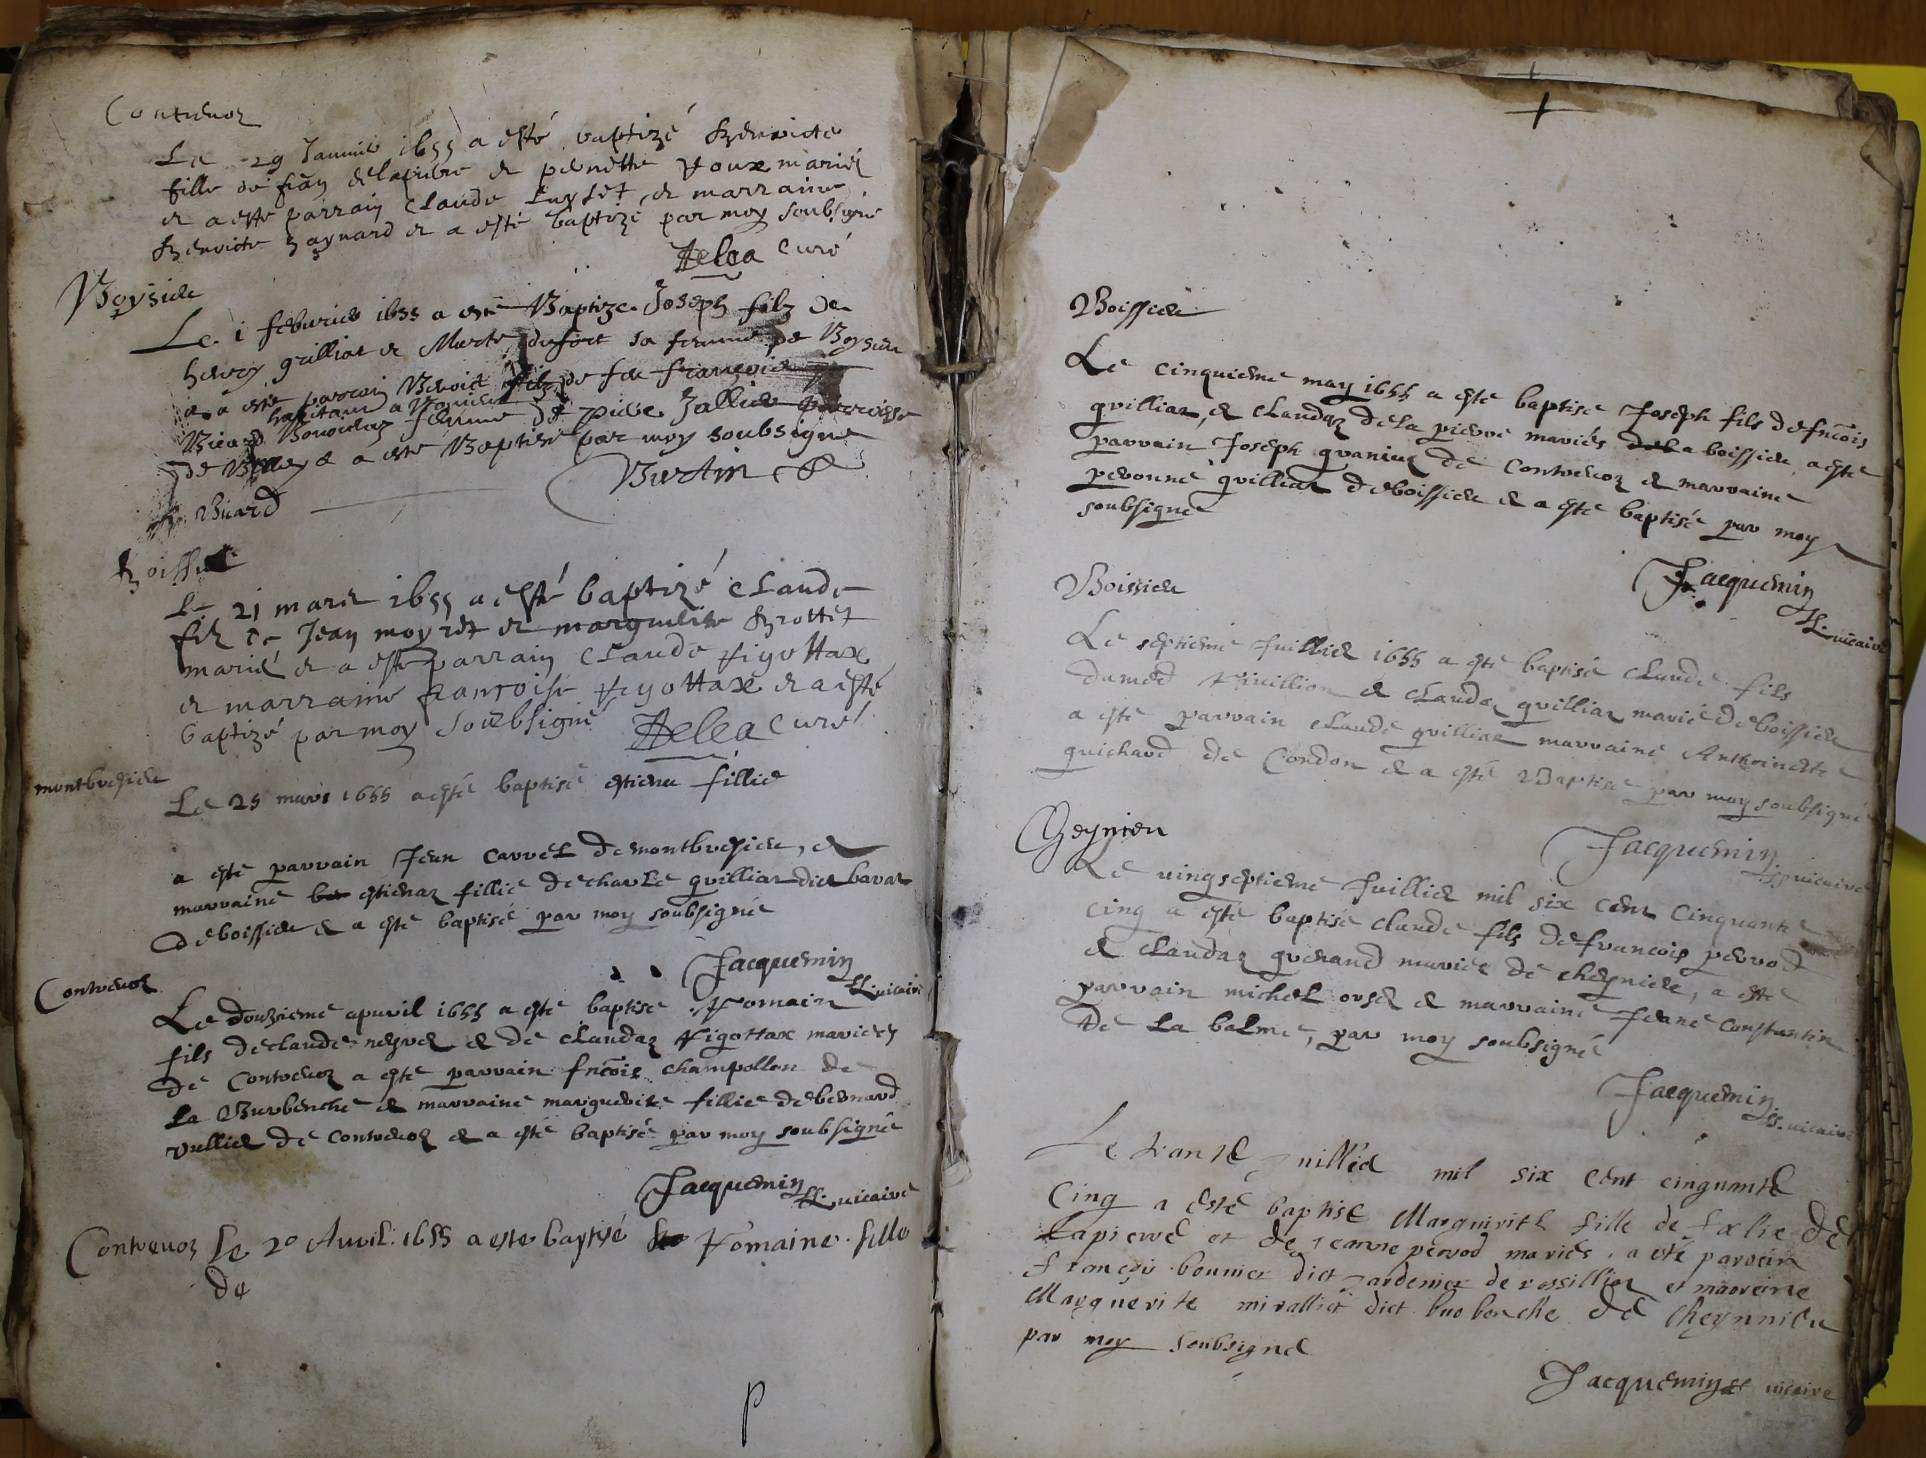 Contrevoz
Le 29 Januier 1655 a esté baptizé Benoicte
fille de fran delapierre et pernette Roux mariés
et a esté parrain Claude Luylet et marraine
Benoicte Baynard et a esté baptizé par moy soubsigné
curé
Boysiere
Le i feburier 1655 a esté Baptize Joseph filz de
henry grilliat et Marte dufort sa femme de Boysiere
a esté parrain Benoict filz de feu françois
habitant a
femme de piere Jallier parroisse
de et a esté Baptize par moy soubsigne
Bertin
Biard
Boissiere
Le 21 mars 1655 a esté baptizé Claude
filz de Jean moyret et marguerite Brottet
mariés et a esté parrain Claude Rigottax
et marraine francoise Rigottax et a esté
baptizé par moy soubsigné curé
montbresiere
Le 25 mars 1655 a esté baptisé estiena fillie
a esté parrain Jean carrel de montbresiere, et
marraine estienaz fillie de charle grilliat dict bavat
de boissiere et a esté baptisé par moy soubsigné
Jacquemin
vicaire
Contrevoz
Le douzieme apuril 1655 a esté baptisé Romain
fils de claude neyret et de claudaz Rigottax mariees
de Contrevoz a esté parrain fncois champollon de
La Burbenche et marraine marguerite fillie de bernard
vullied de Contrevoz et a esté baptisé par moy soubsigné
Jacquemin
vicaire
Contrevoz Le 20 Auril 1655 a este baptisé Romaine fille
de
p
Boissiere
Le cinquieme may 1655 a esté baptisé Joseph fils de fncois
grilliat et claudaz de la pierre mariés de La boissiere a esté
parrain Joseph de Contrevoz et marraine
peronne grilliat de boissiere et a esté baptisé par moy
soubsigné
Jacquemin
vicaire
Boissiere
Le septieme Juillied 1655 a esté baptisé claude fils
damed Rivillion et claudaz grilliat marié de boissiere
a esté parrain claude grilliat marraine Anthoinette
guichard de Condon et a esté Baptisé par moy soubsigné
Jacquemin
vicaire
Cheynieu
Le vingseptieme Juillied mil six cent cinquante
cinq a esté baptisé claude fils de francois perrod
et claudaz guenand mariés de cheyniere, a esté
parrain michel et marraine Jeane constantin
de La balme, par moy soubsigné
Jacquemin
vicaire
Le trante Juillied mil six cent cinquante
cinq a esté baptisé Marguerite fille de felie de
Lapierre et de Jeanne perrod mariés. a esté paroein
françois bounier dict Jardenier de rossillion et maoreine
Marguerite mirallied dict burbenche de Cheynnieu
par moy soubsigné
Jacquemin vicaire